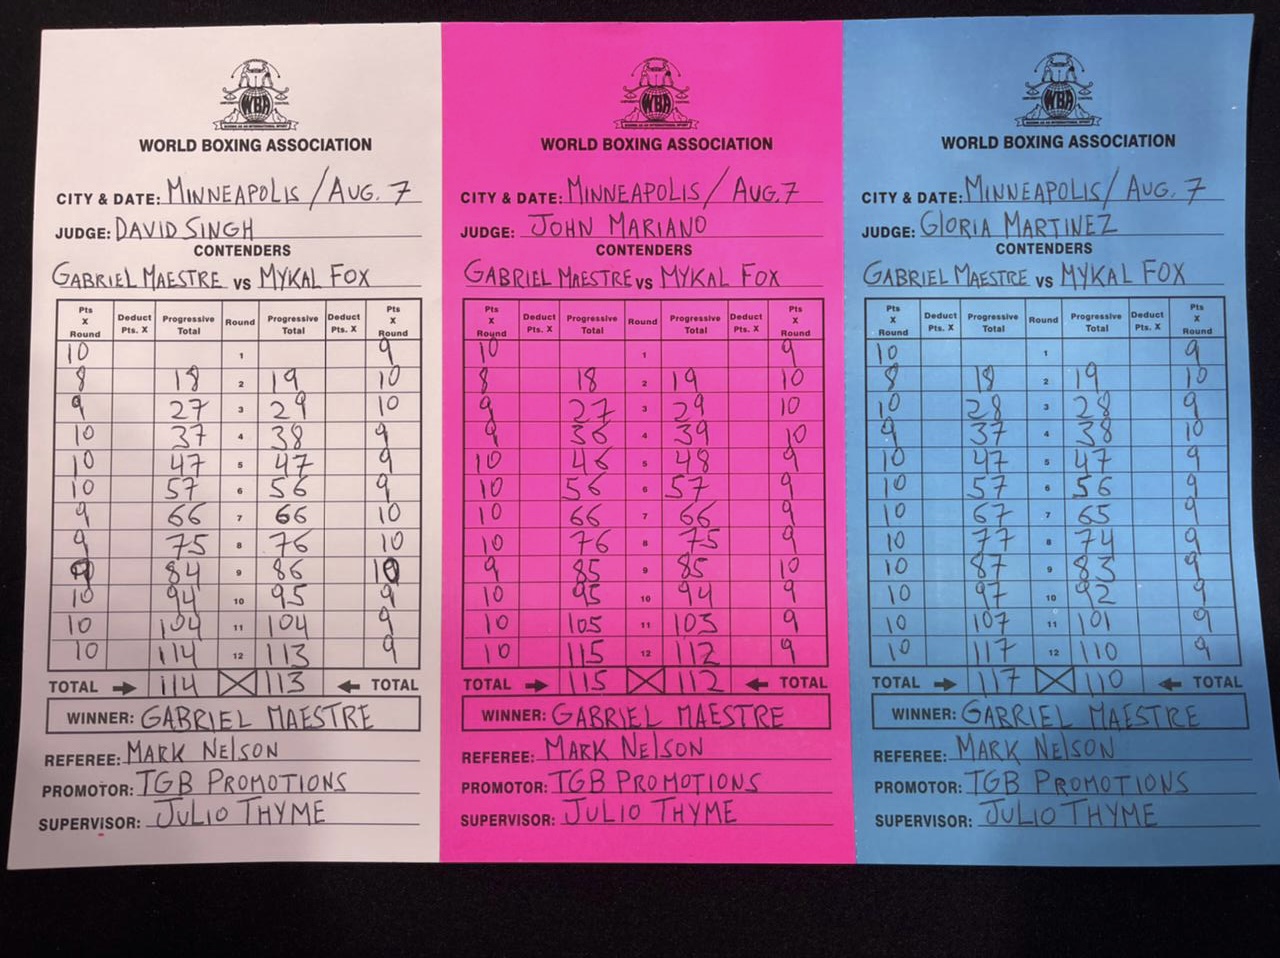 WBA
WORLD BOXING ASSOCIATION
CITY & DATE: MINNEAPOLIS / AUG. 7
JUDGE: DAVID SINGH
CONTENDERS
GABRIEL MAESTRE VS MYKAL FOX
Pts X Round Deduct Pts. X Progressive Total Round Progressive Total Deduct Pts. X Pts X Round
10 1 9
8 18 2 19 10
9 27 3 29 10
10 37 4 38 9
10 47 5 47 9
10 57 6 56 9
9 66 7 66 10
9 75 8 76 10
9 84 9 86 10
10 94 10 95 9
10 104 11 104 9
10 114 12 113 9
TOTAL 114 113 TOTAL
WINNER: GABRIEL MAESTRE
REFEREE: MARK NELSON
PROMOTOR: TGB PROMOTIONS
SUPERVISOR: JULIO THYME
WBA
WORLD BOXING ASSOCIATION
CITY & DATE: MINNEAPOLIS / AUG. 7
JUDGE: JOHN MARIANO
CONTENDERS
GABRIEL MAESTRE VS MYKAL FOX
Pts X Round Deduct Pts. X Progressive Total Round Progressive Total Deduct Pts. X Pts X Round
10 1 9
8 18 2 19 10
9 27 3 29 10
9 36 4 39 10
10 46 5 48 9
10 56 6 57 9
10 66 7 66 9
10 76 8 75 9
9 85 9 85 10
10 95 10 94 9
10 105 11 103 9
10 115 12 112 9
TOTAL 115 112 TOTAL
WINNER: GABRIEL MAESTRE
REFEREE: MARK NELSON
PROMOTOR: TGB PROMOTIONS
SUPERVISOR: JULIO THYME
WBA
WORLD BOXING ASSOCIATION
CITY & DATE: MINNEAPOLIS / AUG. 7
JUDGE: GLORIA MARTINEZ
CONTENDERS
GABRIEL MAESTRE VS MYKAL FOX
Pts X Round Deduct Pts. X Progressive Total Round Progressive Total Deduct Pts. X Pts X Round
10 1 9
8 18 2 19 10
10 28 3 28 9
9 37 4 38 10
10 47 5 47 9
10 57 6 56 9
10 67 7 65 9
10 77 8 74 9
10 87 9 83 9
10 97 10 92 9
10 107 11 101 9
10 117 12 110 9
TOTAL 117 110 TOTAL
WINNER: GABRIEL MAESTRE
REFEREE: MARK NELSON
PROMOTOR: TGB PROMOTIONS
SUPERVISOR: JULIO THYME